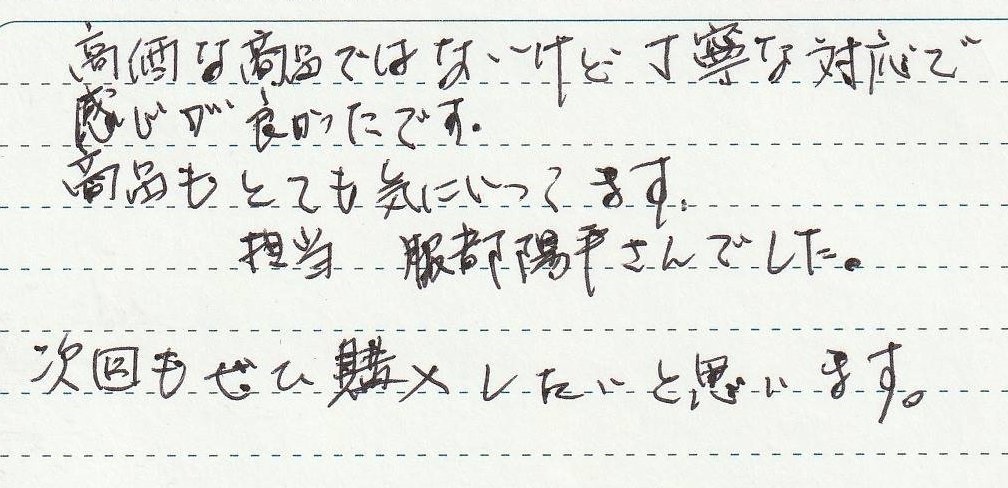 高価な商品ではないけど丁寧な対応で
感じが良かったです。
商品もとても気にいってます。
担当 服部陽平さんでした。
次回もぜひ購入したいと思います。